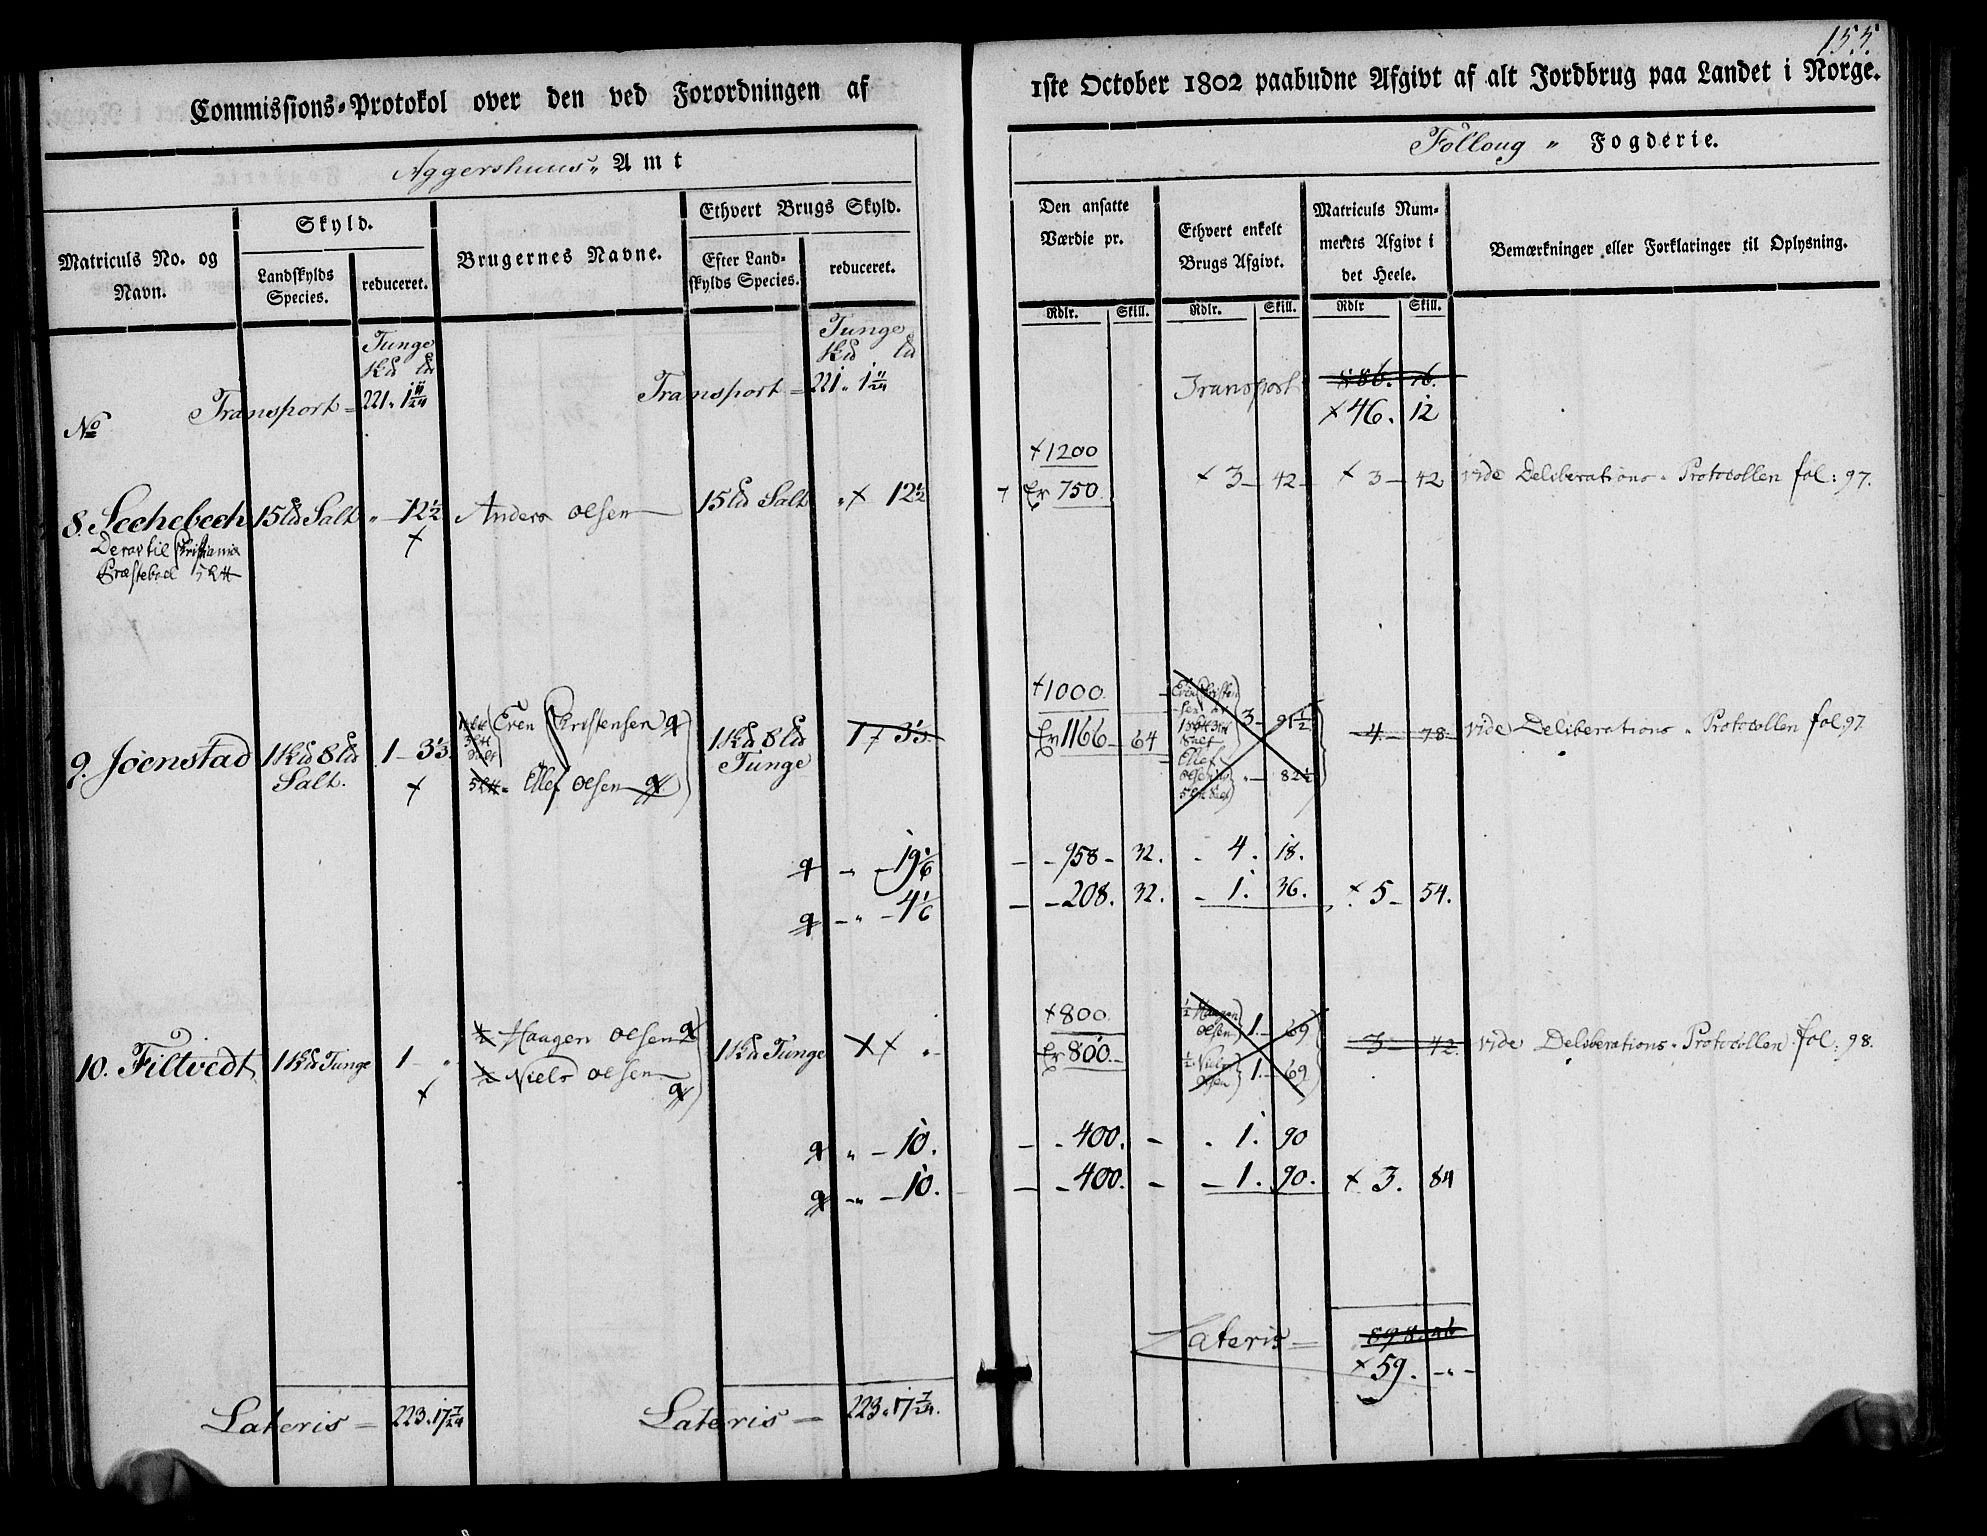 155.
Commissions-Protokol over den ved Forordningen af
1ste October 1802 paabudne Afgivt af alt Jordbrug paa Landet i Norge.
Aggershuus" Amt
Folloug " Fogderie.
Matriculs No. og Navn.
Skyld.
Landskylds Species.
reduceret.
Brugernes Navne.
Ethvert Brugs Skyld.
Efter Landskylds Species.
reduceret.
Den ansatte Værdie pr.
Rdlr. Skill.
Ethvert enkelt Brugs Afgivt.
Rdlr. Skill.
Matriculs Nummerets Afgivt i det Heele.
Rdlr Skill.
Bemærkninger eller Forklaringer til Oplysning.
Tunge
Tunge
No
Transport = 221 " 1 11/24
Transport = 221 " 1 11/24
Transport
× 46. 12
× 1200
8. Seehebech 15 Ld Salt " - 12 1/2 Anders Olsen 15 Ld Salt " × 12 1/2
Er 750 × 3 - 42 - × 3 - 42 vide Deliberations - Protocollen fol: 97.
Præsteboel
+ 1000
9. Joenstad 1 Skd 8 Ld Salt. 1 - 3 1/3. Even Christensen
Ellef Olsen
1 Skd 8 Ld Tunge 1 × 3 1/3.
Er 1166 - 64 3 - 91 1/2
" - 82 1/2
4 - 78 - vide Deliberations - Protocollen fol: 97
" - 19 1/6 - 958 - 32. - 4. 18.
- " - 4 1/6 - 208. 32. - 1. 36. × 5 - 54.
× 800.
10. Filtvedt 1 Skd Tunge 1 - " 1/2 Haagen Olsen
1/2 Niels Olsen
1 Skd Tunge 1 × " -
Er 800 -
1/2 Haagen Olsen 1. - 69
1/2 Niels Olsen 1. - 69
3 - 42. vide Deliberations - Protocollen fol: 98.
" - 10. - 400. - - 1. 90
- " - 10. - 400. - - 1. 90. × 3. 84
Lateris = × 59. - " -
Lateris = 223. 17 7/24
Lateris = 223. 17 7/24.